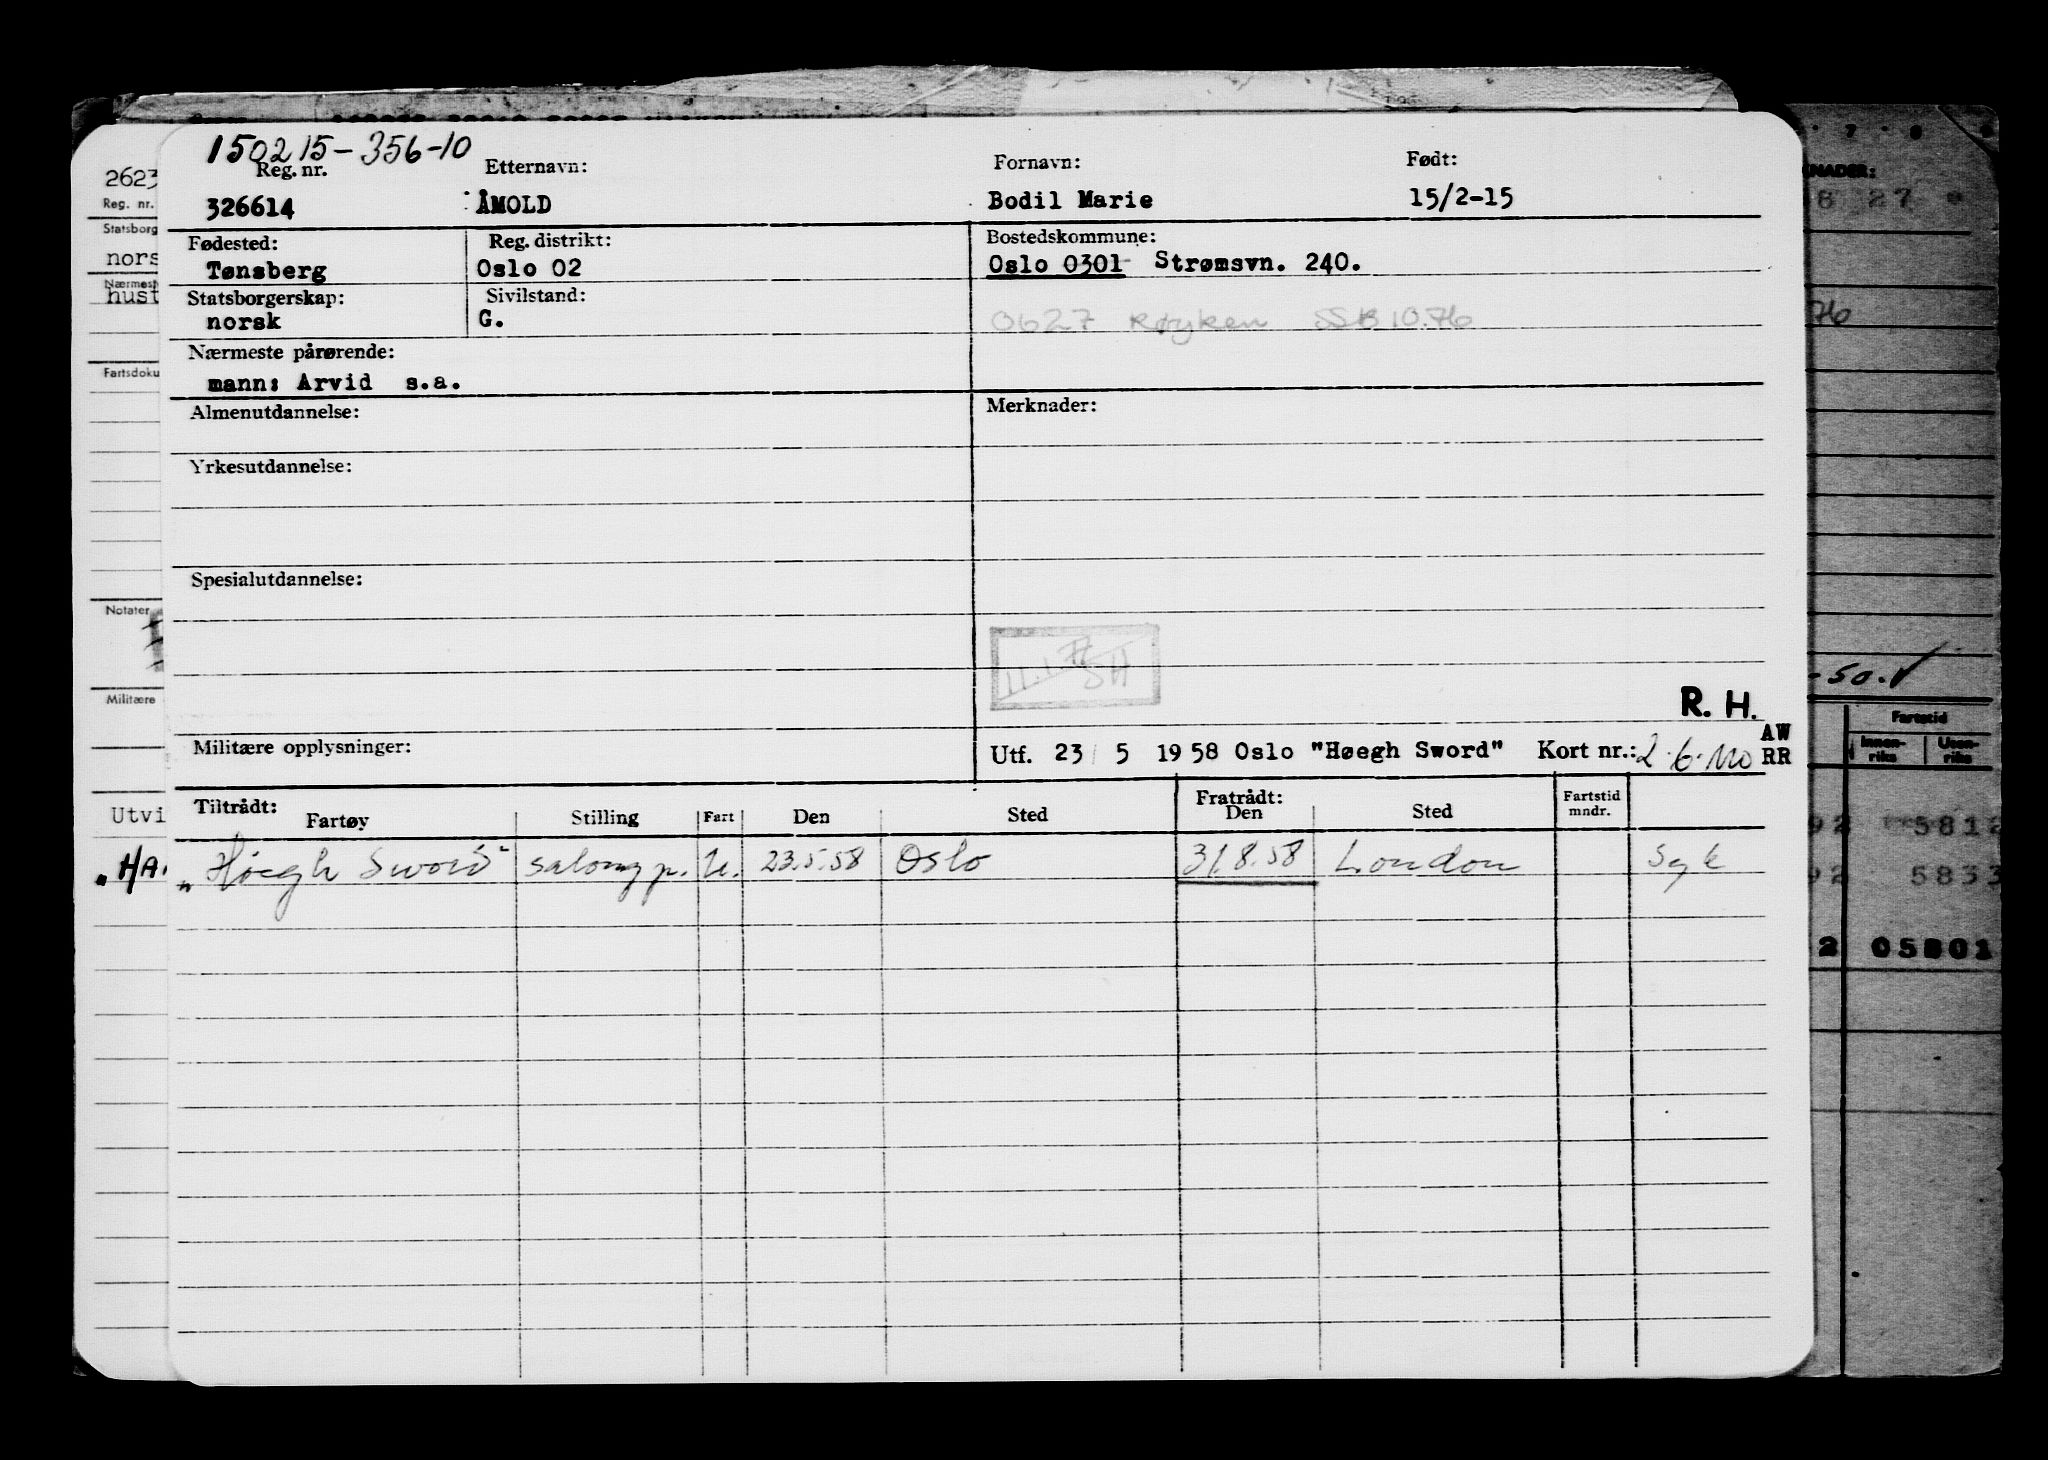 150215-356-10
Reg. nr. Etternavn: Fornavn: Født:
326614 ÅMOLD Bodil Marie 15/2-15
Fødested: Reg. distrikt: Bostedskommune:
Tønsberg Oslo 02 Oslo 0301 Strømsvn. 240.
Statsborgerskap: Sivilstand:
norsk G. 0627 Røyken SSB 10.76
Nærmeste pårørende:
mann: Arvid s.a.
Almenutdannelse: Merknader:
Yrkesutdannelse:
Spesialutdannelse:
11.1.77
SH
R. H.
Militære opplysninger: Utf. 23/5 1958 Oslo "Høegh Sword" Kort nr.: AW
RR
Tiltrådt: Fratrådt:
Fartøy Stilling Fart Den Sted Den Sted Fartstid mndr.
"Høegh Sword" salongp. U. 23.5.58 Oslo 31.8.58 London Syk
2623
Reg. nr.
Statsborg
nors
Nærmest
hust
Fartsdoku
Notater
Militære
Utvi
"HA
7 8
NADER:
8 27
76
-50.✓
Fartstid
Innen-riks Uten-riks
92 5812
92 5833
2 05801